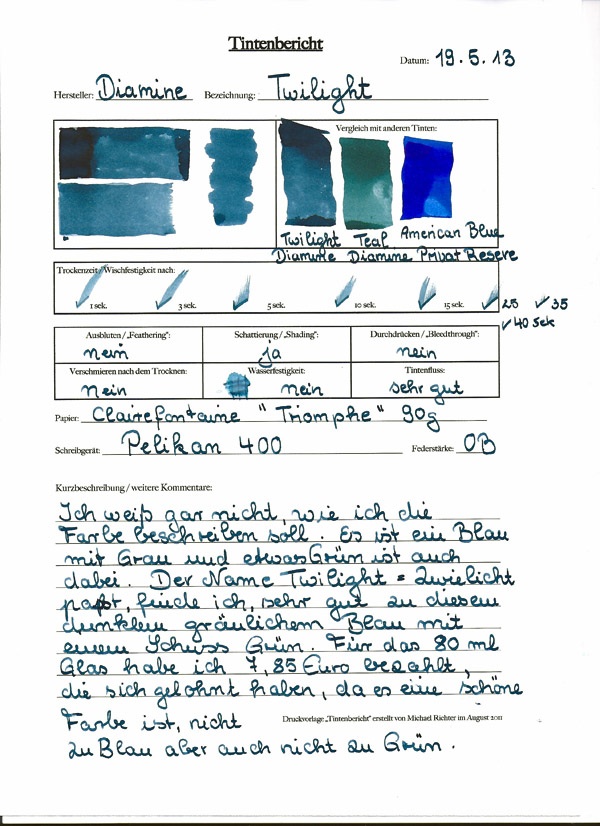 Tintenbericht
Datum: 19.5.13
Hersteller: Diamine Bezeichnung: Twilight
Vergleich mit anderen Tinten:
Twilight Teal American Blue
Diamine Diamine Privat Reserve
Trockenzeit/Wischfestigkeit nach:
1 sek. 3 sek. 5 sek. 10 sek. 15 sek. 25 35
40 Sek
Ausbluten/„Feathering": Schattierung/„Shading": Durchdrücken/„Bleedthrough":
nein ja nein
Verschmieren nach dem Trocknen: Wasserfestigkeit: Tintenfluss:
nein nein sehr gut
Papier: Clairefontaine "Triomphe" 90g
Schreibgerät: Pelikan 400 Federstärke: OB
Kurzbeschreibung/weitere Kommentare:
Ich weiß gar nicht, wie ich die
Farbe beschreiben soll. Es ist ein Blau
mit Grau und etwas Grün ist auch
dabei. Der Name Twilight = Zwielicht
paßt, finde ich, sehr gut zu diesem
dunklem gräulichem Blau mit
einem Schuss Grün. Für das 80 ml
Glas habe ich 7,85 Euro bezahlt,
die sich gelohnt haben, da es eine schöne
Farbe ist, nicht
Druckvorlage „Tintenbericht" erstellt von Michael Richter im August 2011
zu Blau aber auch nicht zu Grün.